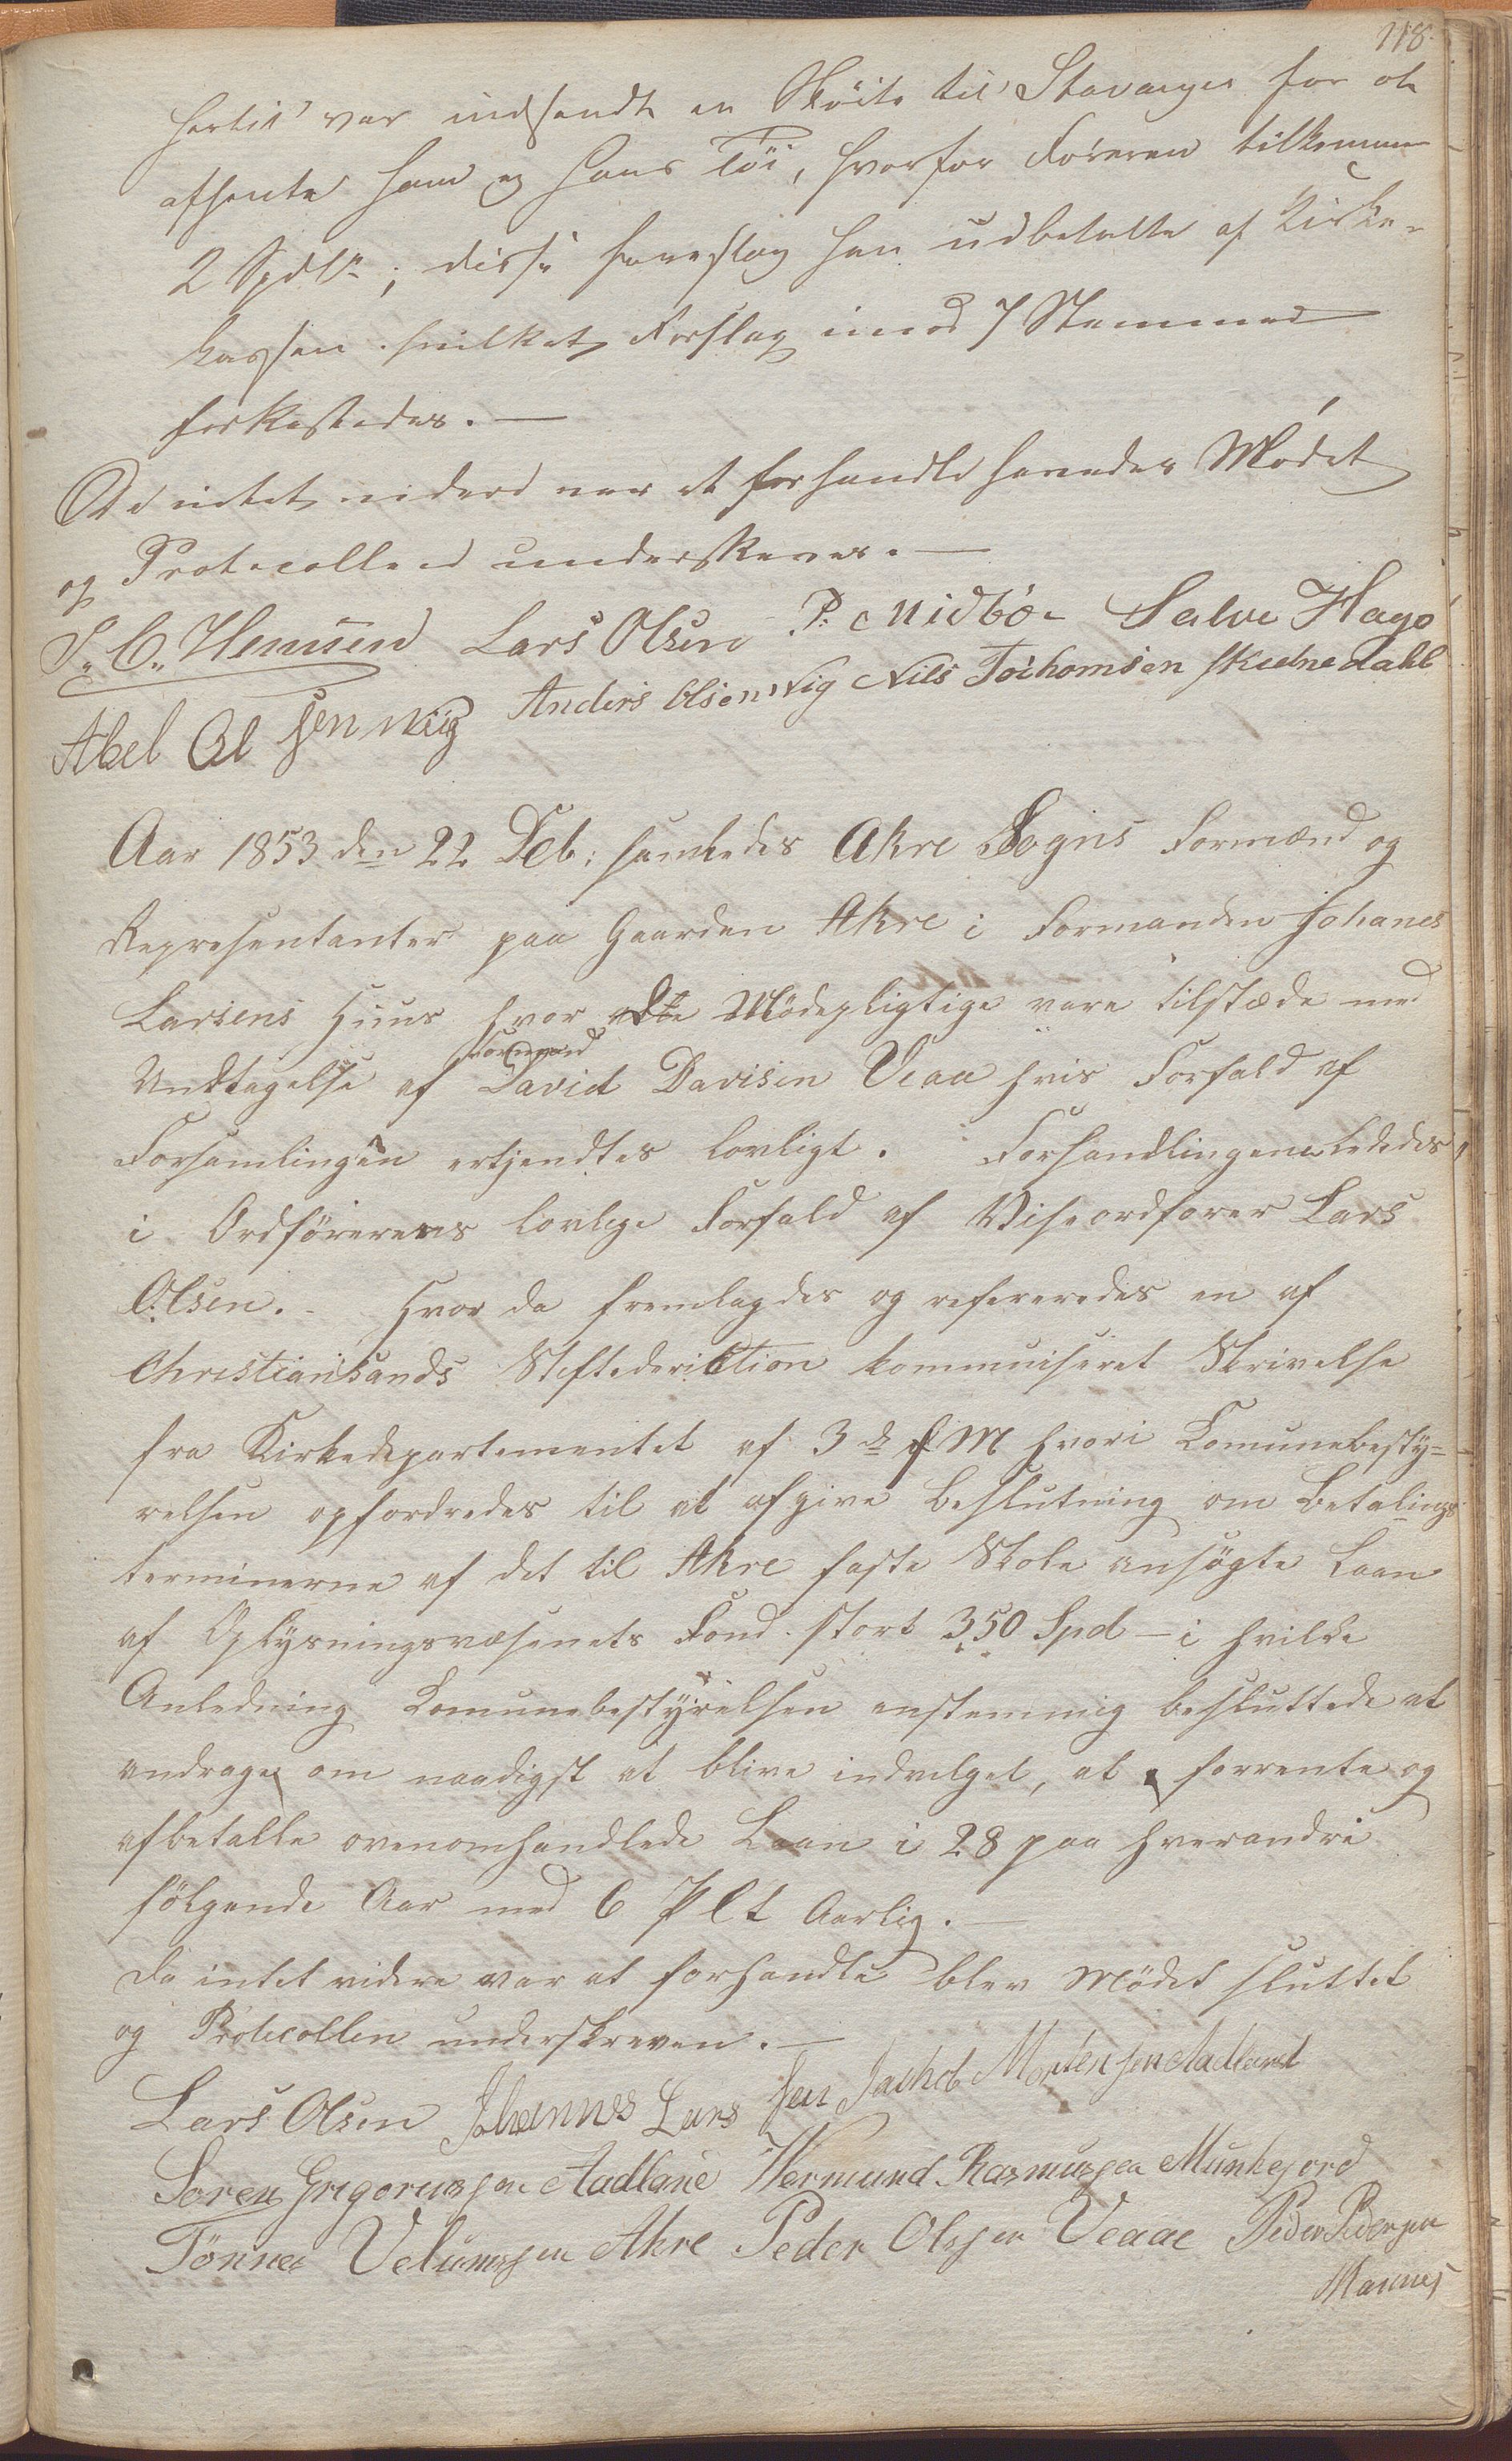 118.
hertil var indsendt en Sköite til Stavanger for at
afhente ham og hans Töi, hvorfor Föreren tilkommer
2 Spdlr; disse foreslog han udbetalte af Kirke-
kassen hvilket Forslag imod 7 Stemmer
forkastedes. —
Da intet videre var at forhandle hævedes Mödet
og Protocollen underskreves. —
S. C. Hemsen Lars Olsen P. Midbö Salve Hage
Abel Ol sen Wiig Anders Olsen Vig Nils Tochomsen Skudnedahl
Aar 1853 den 22 Feb: samledes Akre Sogns Formænd og
Representanter paa Gaarden Akre i Formanden Johanes
Larsens Huus hvor de Mödepligtige vare tilstæde med
Formand
Undtagelse af David Davisen Veaa hvis Forfald af
Forsamlingen erkjendtes lovligt. Forhandlingene lededes
i Ordförerens lovlige Forfald af Viseordförer Lars
Olsen. - Hvor da fremlagdes og refereredes en af
Christiansands Stiftederiktion kommuiseret Skrivelse
fra Kirkedepartementet af 3d f M hvori Comunebesty=
relsen opfordredes til at afgive Beslutning om Betalings
terminerne af det til Akre faste Skole ansögte Laan
af Oplysningsvæsenets Fond stort 350 Spd - i hvilke
Anledning Comunebestyrelsen enstemmig besluttede at
andrage om naadigst at blive indvilget, at forrente og
afbetalle ovenomhandlede Laan i 28 paa hverandre
fölgende Aar med 6 Pct Aarlig. —
Da intet videre var at forhandle blev Mödet sluttet
og Protocollen underskreven. —
Lars Olsen Johannes Lars sen Jachob Mortensen Aadland
Soren Grigoriussen Aadland Wermund Rasmussen Munkejord
Tönnes Velumssen Akre Peder Olssen Veaae Peder Pedersen
Mannes